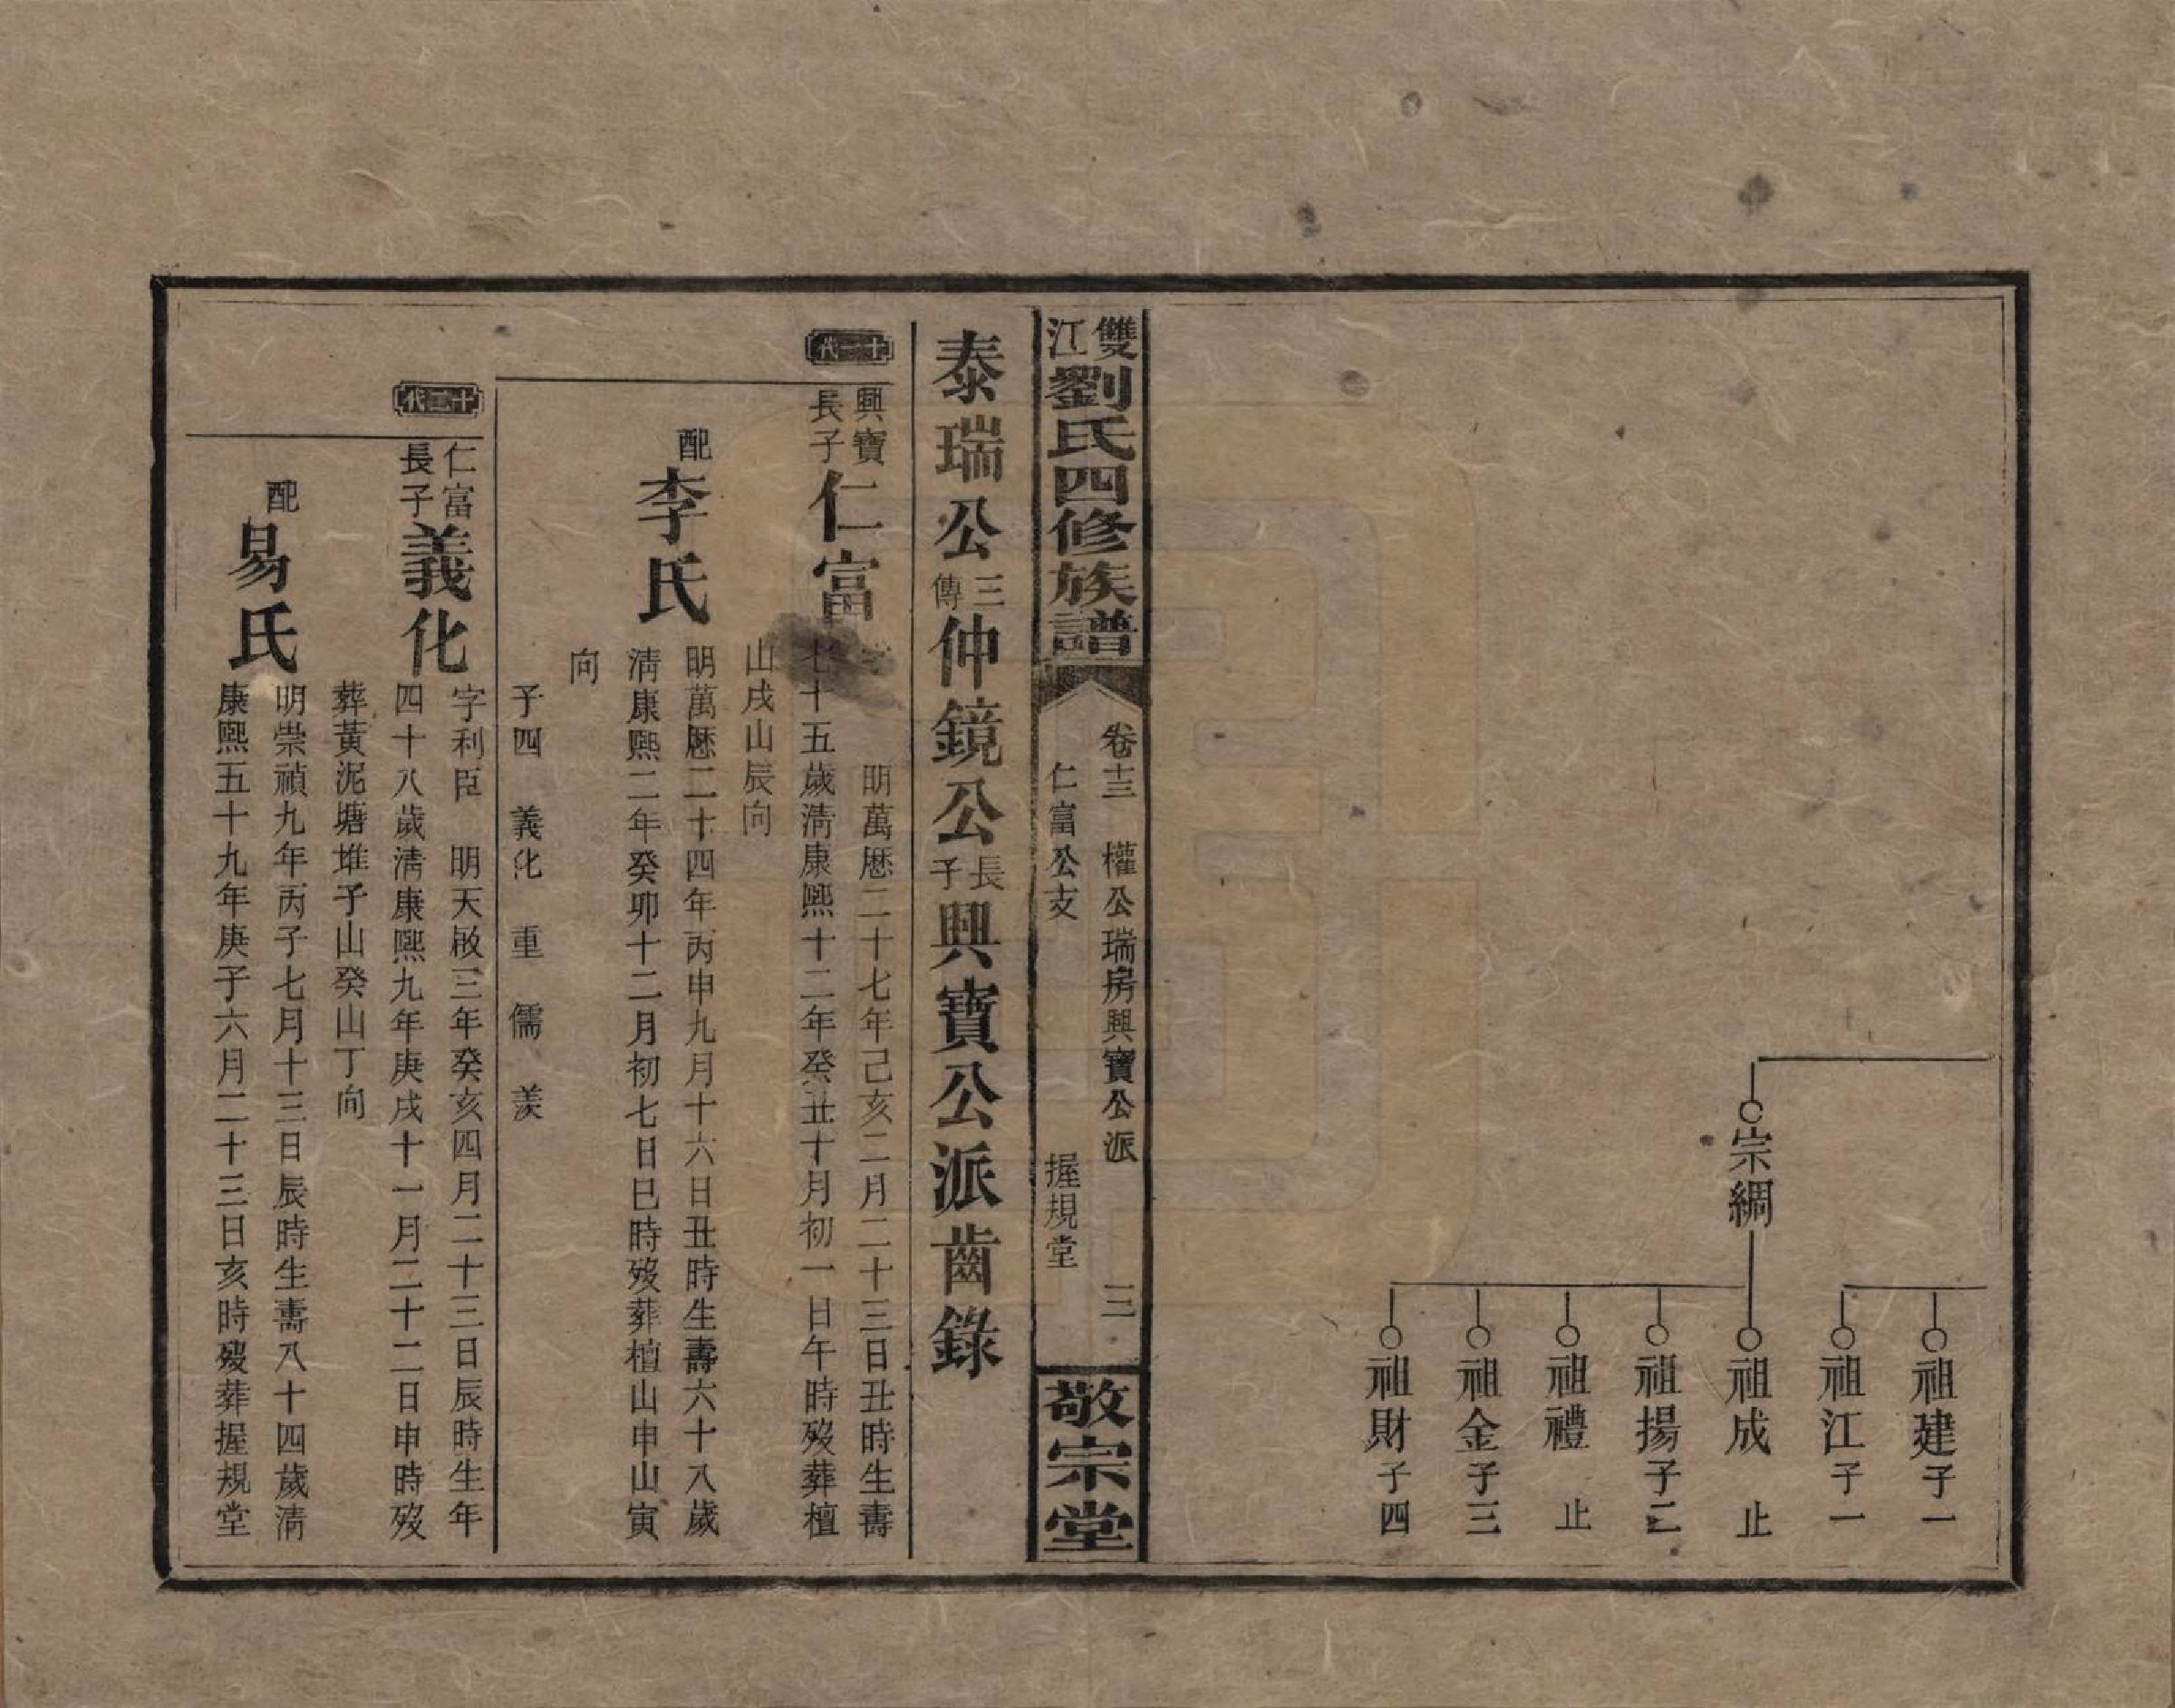 宗綢
祖建子一
祖江子一
祖成 止
祖揚子二
祖禮 止
祖金子三
祖財子四
雙江劉氏四修族譜
卷十三 權公瑞房興寶公派 三
仁富公支 握規堂
敬宗堂
泰瑞公三傳仲鏡公長子興寶公派齒錄
十一代
興寶長子仁富
明萬厯二十七年己亥二月二十三日丑時生壽
七十五歲清康熙十二年癸丑十月初一日午時歿葬檀
山戌山辰向
配李氏
明萬厯二十四年丙申九月十六日丑時生壽六十八歲
清康熙二年癸卯十二月初七日巳時歿葬檀山申山寅
向
子四 義化 重 儒 羨
十二代
仁富長子義化
字利臣 明天啟三年癸亥四月二十三日辰時生年
四十八歲清康熙九年庚戌十一月二十二日申時歿
葬黃泥塘堆子山癸山丁向
配易氏
明崇禎九年丙子七月十三日辰時生壽八十四歲清
康熙五十九年庚子六月二十三日亥時歿葬握規堂